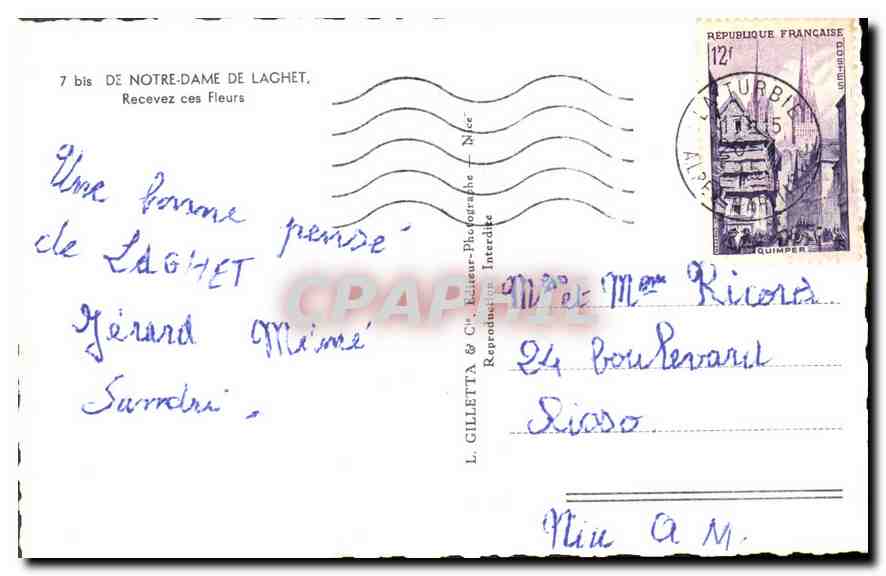 7 bis DE NOTRE-DAME DE LAGHET,
Recevez ces Fleurs
Une bonne pensé
de LAGHET
Gérard Mémé
Sandri.
L. GILLETTA & Cie, Editeur-Photographe — Nice
Reproduction Interdite
RÉPUBLIQUE FRANÇAISE
12f
POSTES
QUIMPER
LA TURBIE
CPAPHIL
Mr et Mme Ricord
24 boulevard
Risso
Nice A M.